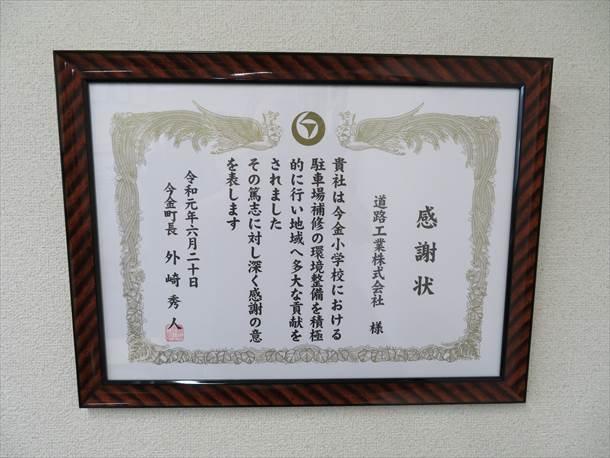 感謝状
道路工業株式会社 様
貴社は今金小学校における
駐車場補修の環境整備を積極
的に行い地域へ多大な貢献を
されました
その篤志に対し深く感謝の意
を表します
令和元年六月二十日
今金町長 外崎秀人